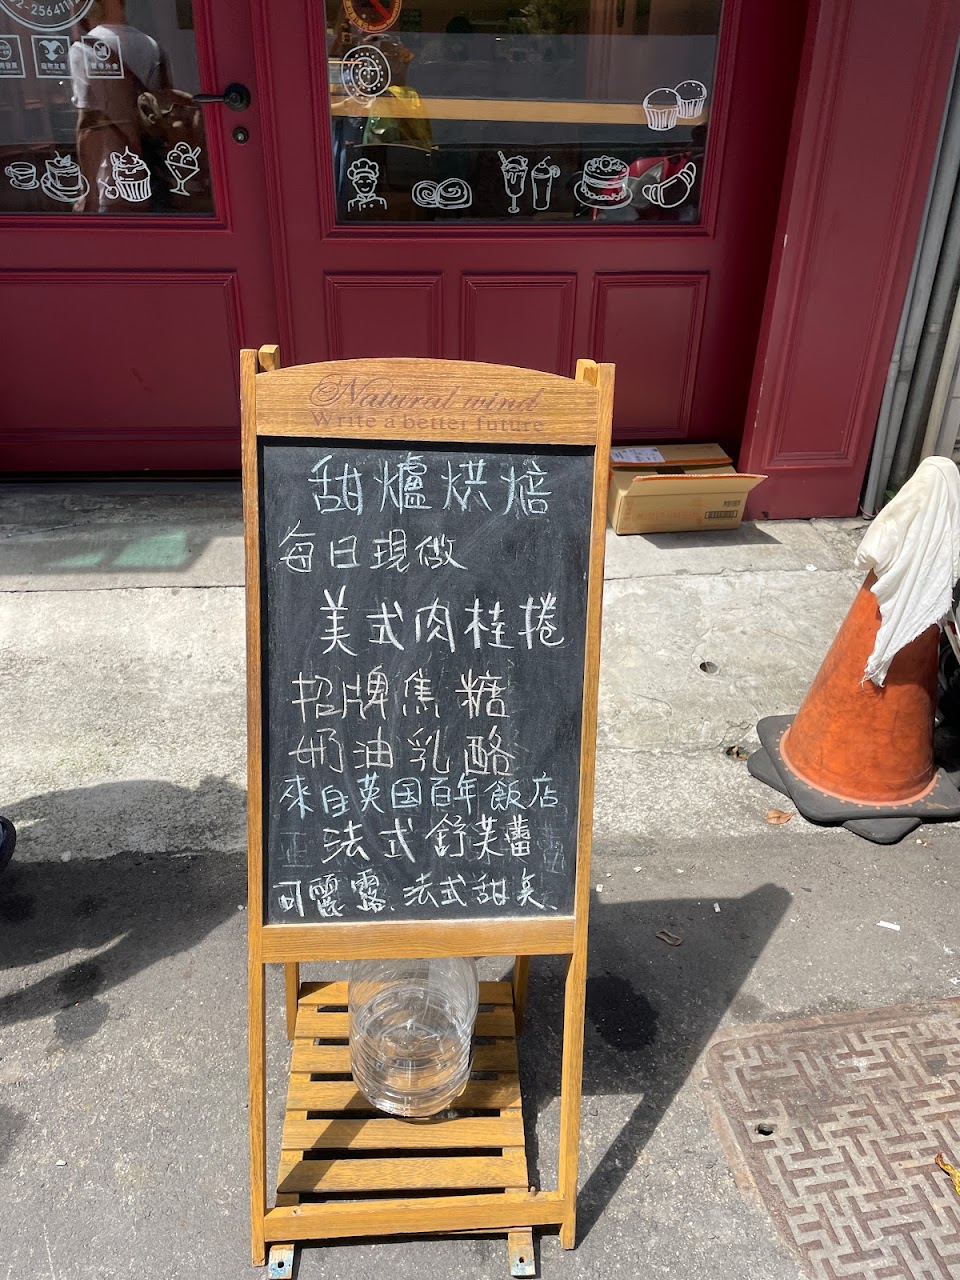 02-256411
Natural wind
Write a better future
甜爐烘焙
每日現做
美式肉桂捲
招牌焦糖
奶油乳酪
來自英国百年飯店
法式舒芙蕾
可麗露.法式甜点.